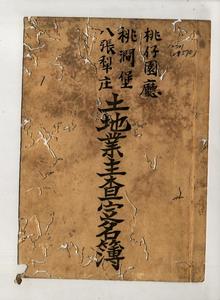 桃仔園廳
桃澗堡
八張犁庄
土地業主查定名簿